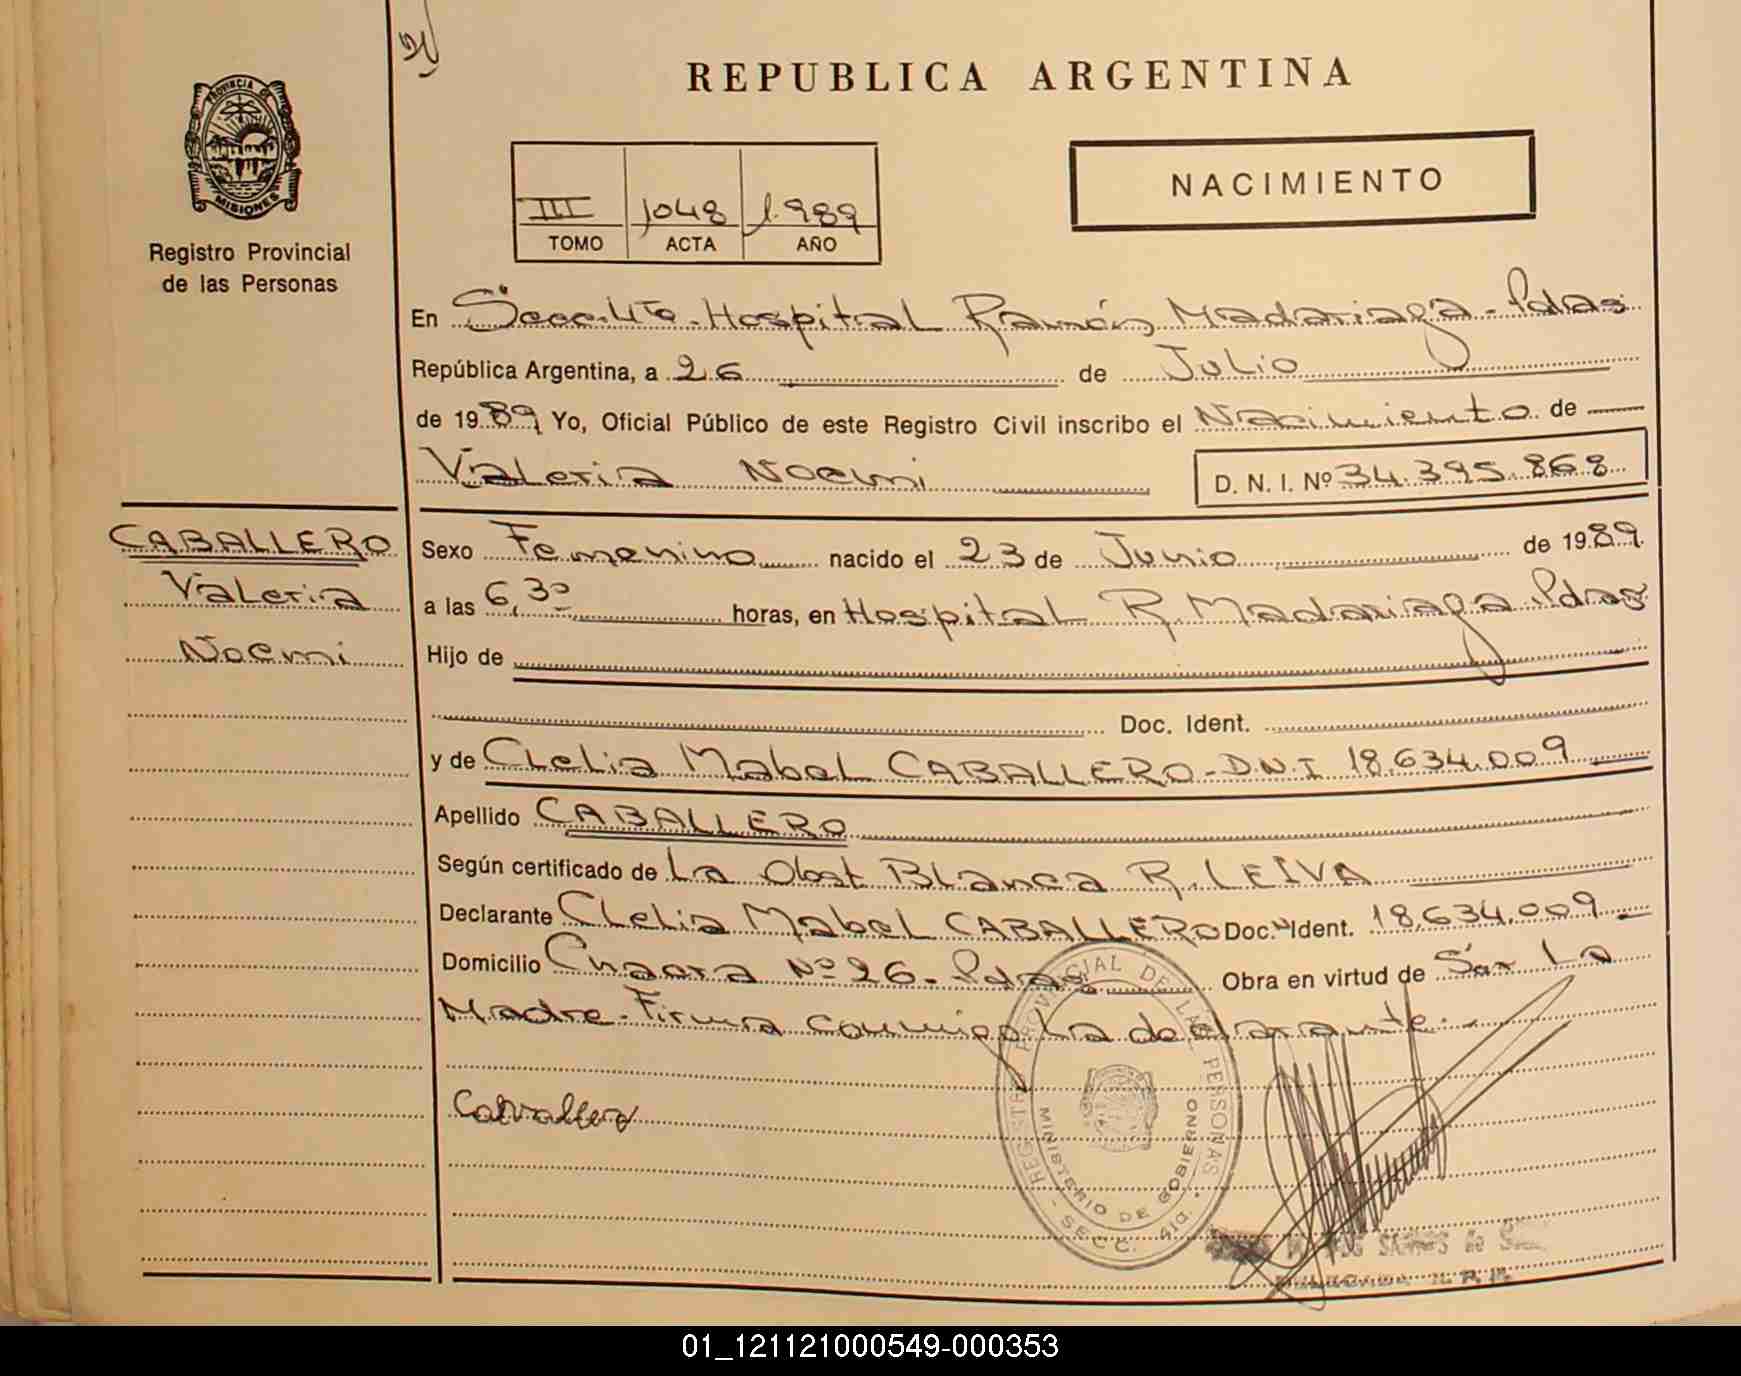 PROVINCIA DE
MISIONES
Registro Provincial
de las Personas
REPUBLICA ARGENTINA
NACIMIENTO
III 1048 1.989
TOMO ACTA AÑO
En Secc. 4ta. Hospital Ramón Madariaga - Pdas
República Argentina, a 26 de Julio
de 1989 Yo, Oficial Público de este Registro Civil inscribo el Nacimiento de
Valeria Noemi D. N. I. Nº 34.395.868
CABALLERO
Valeria
Noemi
Sexo Femenino nacido el 23 de Junio de 1989
a las 6,30 horas, en Hospital R. Madariaga Pdas
Hijo de
Doc. Ident.
y de Clelia Mabel CABALLERO - D.N.I 18.634.009
Apellido CABALLERO
Según certificado de La Obst Blanca R. LEIVA
Declarante Clelia Mabel CABALLERO Doc. Ident. 18.634.009
Domicilio Chacra Nº 26 - Pdas Obra en virtud de Ser La
Madre - Firma conmigo La declarante.
Caballero
REGISTRO PROVINCIAL DE LAS PERSONAS
MINISTERIO DE GOBIERNO
- SECC. 4ta. -
DELEGADA R. P. P.
01_121121000549-000353